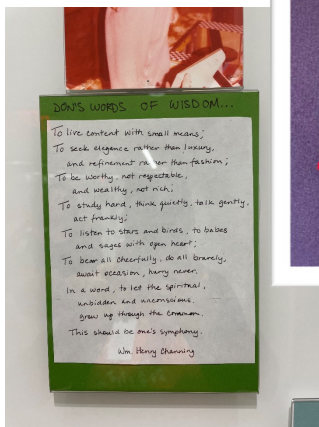 DON'S WORDS OF WISDOM...
To live content with small means;
To seek elegance rather than luxury,
and refinement rather than fashion;
To be worthy, not respectable,
and wealthy, not rich;
To study hard, think quietly, talk gently,
act frankly;
To listen to stars and birds, to babes
and sages with open heart;
To bear all cheerfully, do all bravely,
await occasion, hurry never.
In a word, to let the spiritual,
unbidden and unconscious,
grow up through the common.
This should be one's symphony.
Wm. Henry Channing